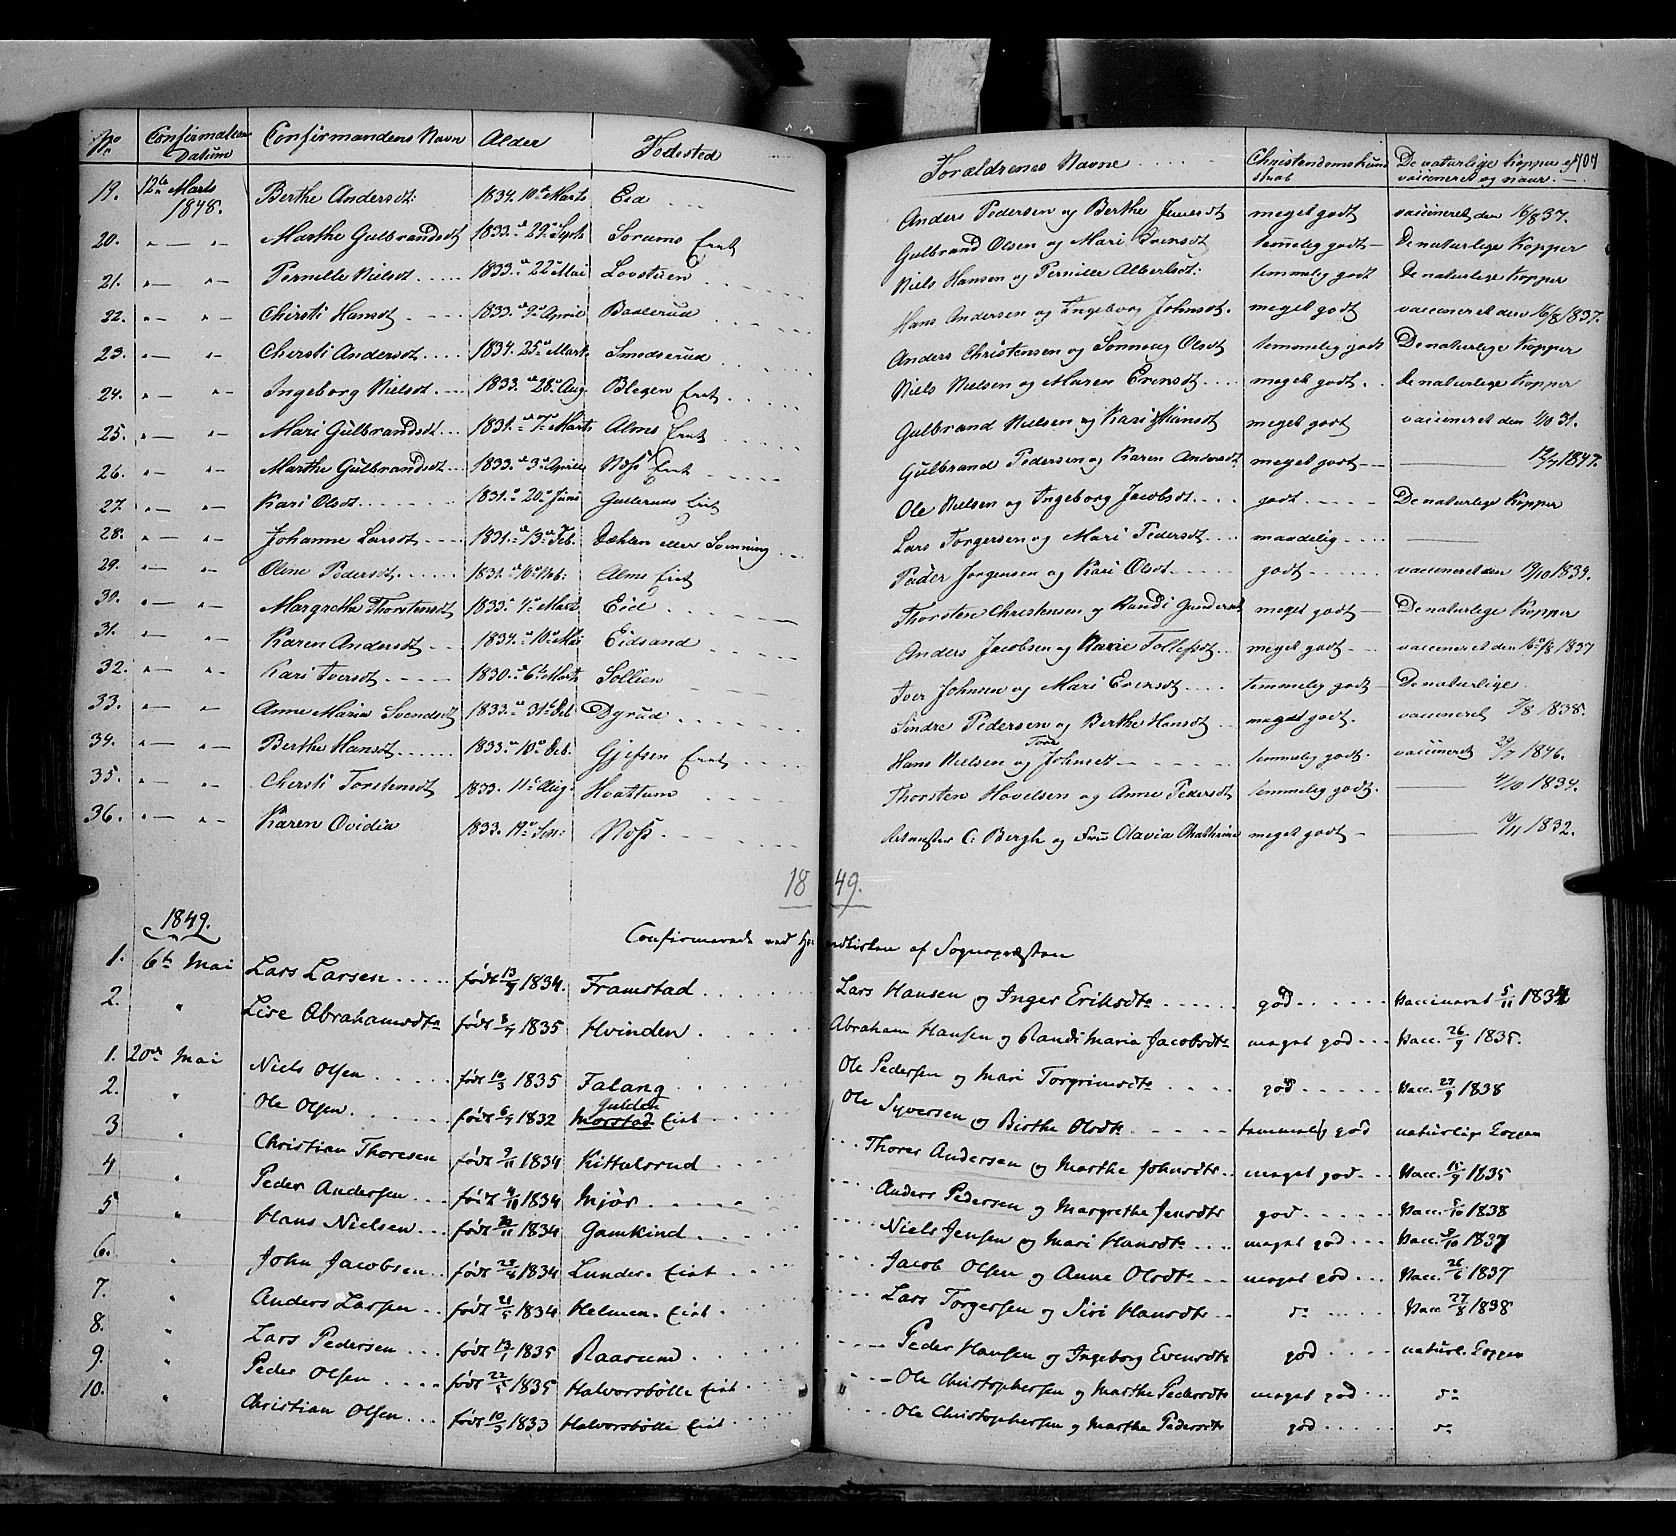 No Confirmations Datum Confirmandens Navn Alder Fødested Forældrenes Navne Christendomskundskab De naturlige Kopper eller vaccineret og naar. 707
19. 12te Marts 1848. Berthe Andersdt: 1834. 10de Marts Eid Anders Pedersen og Berthe Jensdt meget godt vaccineret den 16/8 37.
20. " — " — Marthe Gulbrandsdt 1833. 29de Sept. Sorums Eiet Gulbrand Olsen og Mari Evensdt temmelig godt — De naturlige Kopper
21. " — " — Pernille Nielsdt 1833. 22de Mai Lovstuen Niels Hansen og Pernille Albertsdt: temmelig godt De naturlige Kopper
22. " — " — Chirsti Hansdt 1833. 9de April Baalerud Hans Andersen og Ingeborg Johnsdt. meget godt vaccineret den 16/8 1837.
23. " — " — Chersti Andersdt 1834. 25de Mart. Smedserud Anders Christensen og Sønneug Olsdt temmelig godt De naturlige Kopper
24. " — " — Ingeborg Nielsdt 1833. 28de Aug. Blegen Eiet Niels Nielsen og Maren Evensdt meget godt De naturlige Kopper
25. " — " — Mari Gulbrandsdt 1831. Marts Alms Eiet Gulbrand Nielsen og Kari Hansdt meget godt vaccineret den /10 31.
26. " — " — Marthe Gulbrandsdt 1833. 3de April Næss Eiet Gulbrand Pedersen og Karen Andersdt meget godt — 1847.
27. " — " — Kari Olsdt 1831. 20de Juni Gulleruds Eiet Ole Nielsen og Ingeborg Jacobsdt godt De naturlige Kopper
28. " — " — Johanne Larsdt 1831. 13de Feb. Dæhlen eller Lars Torgersen og Mari Pedersdt maadelig ———
29. " — " — Oline Pedersdt 1831. 10de Alms Eiet Peder Jørgensen og Kari Olsdt godt vaccineret den /10 1834.
30. " — " — Margrethe Thorstensdt 1833. Eid Thorsten Christensen og Randi Gundersdt meget godt — De naturlige Kopper
31. " — " — Karen Andersdt 1834. 10de Mai Eidsand Anders Jacobsen og Marie Tollefsdt meget godt — vaccineret den 16/8 1837
32. " — " — Kari Iversdt 1830. 6te Marts Sollien Iver Johnsen og Mari Evensdt temmelig godt — De naturlige
33. " — " — Anne Maria Svendsdt 1833. 31te Dyrud Sindre Pedersen og Berthe Hansdt meget godt. vaccineret 7/8 1838.
34. " — " — Berthe Hansdt 1833. 10de Gjefsen Eiet Hans Nielsen og Tore Johnsdt temmelig godt vaccineret 29/7 1846.
35. " — " — Chersti Torstensdt 1833. 11te Aug. Hvattum Thorsten Hovelsen og Anne Pedersdt temmelig godt. ——— /10 1834.
36. " — " — Karen Ovidia 1833. Næss C. Bergh og Frue Olavia Mathhine meget godt — ——— /11 1832.
1849.
1849. Confirmerede ved Hovedkirken af Sognepræsten
1. 6te Mai Lars Larsen født 13/9 1834. Framstad Lars Hansen og Inger Eriksdtr god Vaccineret 5/11 1834
2. " Lise Abrahamsdtr født 8/4 1835 Hvinden Abraham Hansen og Randi Maria Jacobsdtr meget god Vacc. 26/9 1835.
1. 20de Mai Niels Olsen født 10/3 1835 Falang Ole Pedersen og Mari Torgrimsdtr god Vacc. 27/9 1838
2. " Ole Olsen født 6/4 1832 Gulden Morstad Eiet Ole Syversen og Birthe Olsdtr temmelig god naturlige Kopper
3 " Christian Thoresen født 9/11 1834 Kittelsrud Thores Andersen og Marthe Johnsdtr meget god Vacc. 15/9 1835
4 " Peder Andersen født 4/10 1834 Mjør Anders Pedersen og Margrethe Jensdtr god Vacc. 5/10 1838
5 " Hans Nielsen født 22/11 1834 Gamkind Niels Jensen og Mari Hansdtr meget god Vacc. 9/10 1837
6. " John Jacobsen født 23/4 1834 Lunder. Eiet Jacob Olsen og Anne Olsdtr meget god Vacc. 26/6 1837
7. " Anders Larsen født 21/5 1834 Helmen. Eiet Lars Torgersen og Siri Hansdtr do Vacc 27/8 1838
8. " Lars Pedersen født 13/1 1835 Raasund Peder Hansen og Ingeborg Evensdtr god naturl. Kopper
9. " Peder Olsen født 22/5 1835 Halvorsbølle Eiet Ole Christophersen og Marthe Pedersdtr meget god do
10. " Christian Olsen født 10/3 1833 Halvorsbølle Eiet Ole Christophersen og Marthe Pedersdtr god do